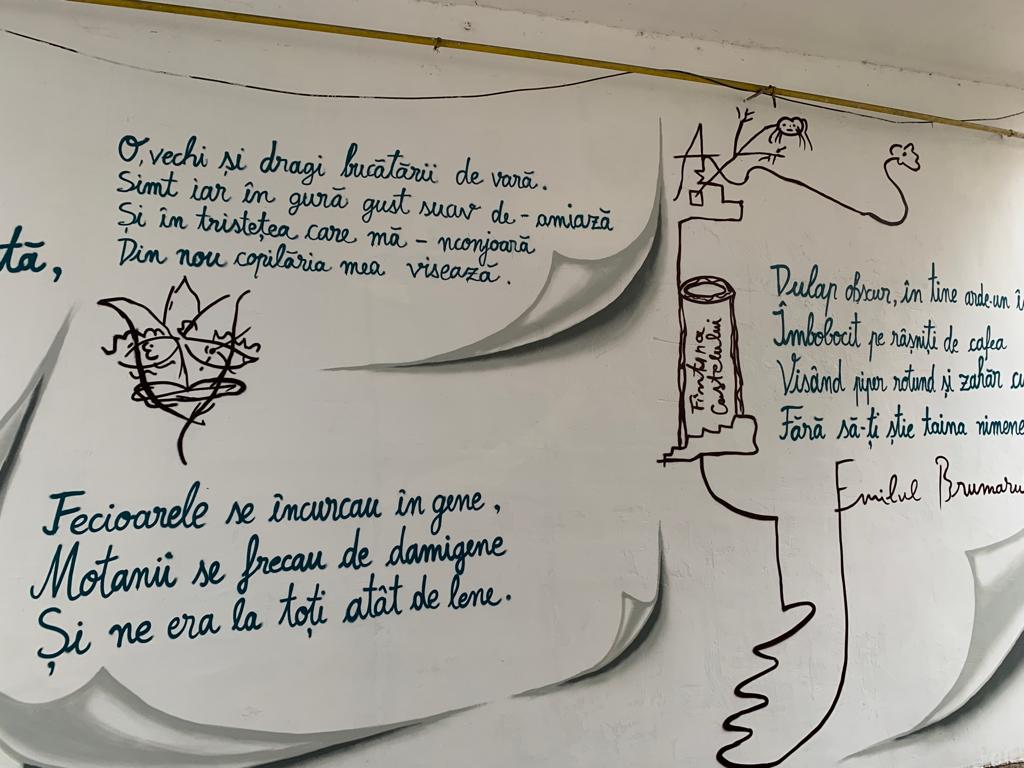 O, vechi și dragi bucătării de vară.
Simt iar în gură gust suav de-amiază
Și în tristețea care mă-nconjoară
Din nou copilăria mea visează.
tă,
Fecioarele se încurcau în gene,
Motanii se frecau de damigene
Și ne era la toți atât de lene.
Fîntîna
Castelului
Dulap obscur, în tine arde-un
Îmbobocit pe râșniți de cafea
Visând piper rotund și zahăr
Fără să-ți știe taina
Emilul Brumaru